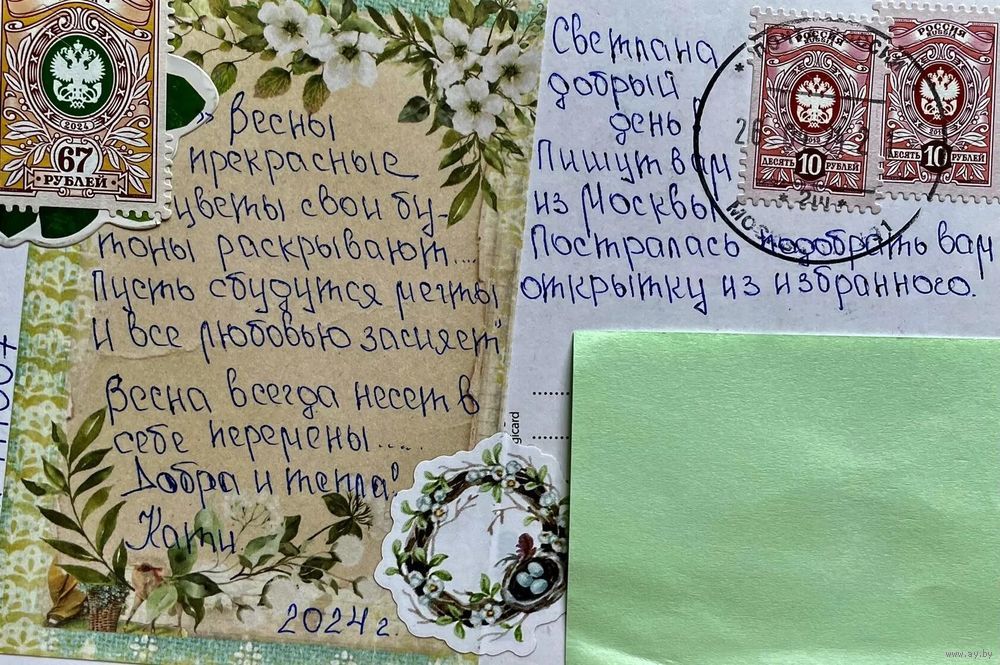 2024
67
РУБЛЕЙ
„ Весны
прекрасные
цветы свои бу-
тоны раскрывают...
Пусть сбудутся мечты
И все любовью засияет"
Весна всегда несет в
себе перемены....
Добра и тепла!
Кати
2024 г.
Светлана
добрый
день!
Пишут вам
из Москвы
Постралась подобрать вам
открытку из избранного.
РОССИЯ
ROSSIJA
ДЕСЯТЬ 10 РУБЛЕЙ
РОССИЯ
ROSSIJA
ДЕСЯТЬ 10 РУБЛЕЙ
gicard
www.ay.by